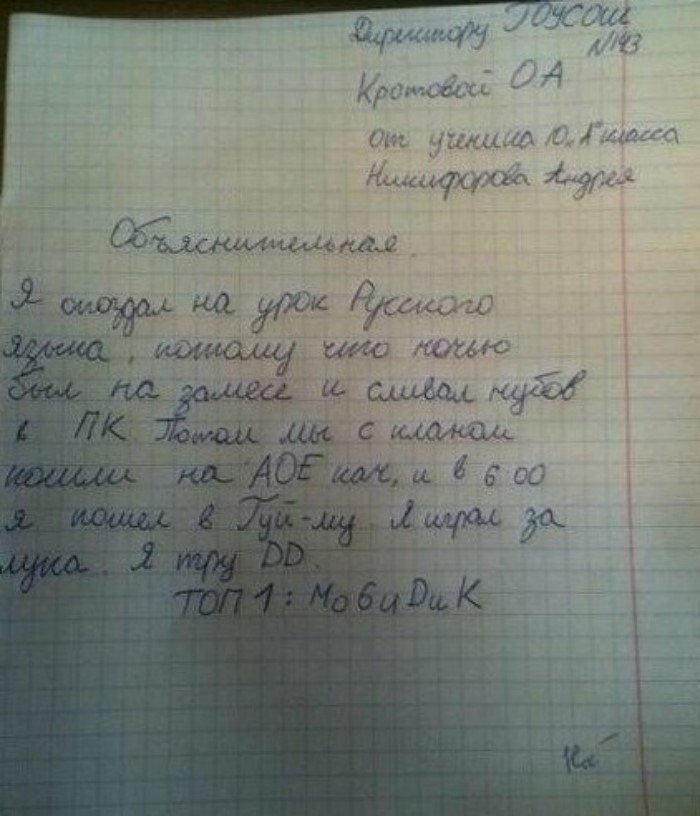 Директору ГОУСОШ
N143
Кротовой О А
от ученика 10 "А" класса
Никифорова Андрея
Объяснительная.
Я опоздал на урок Русского
языка, потому что ночью
был на замесе и сливал нубов
в ПК Потом мы с кланом
пошли на АОЕ кач, и в 6 00
я пошел в Гуй-му. Я играл за
лука. Я тру DD.
ТОП 1: МоБиДиК